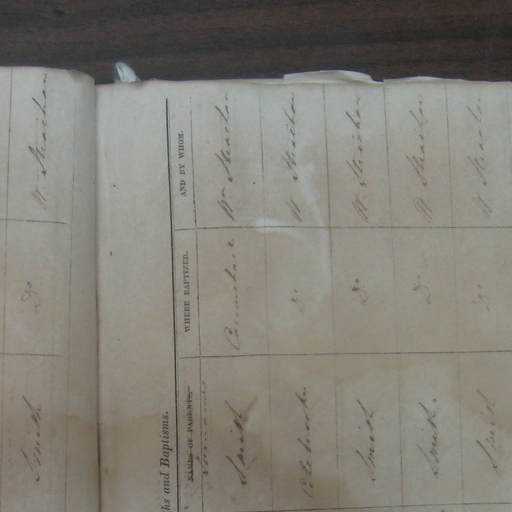 Smith Do W. Strachan
ths and Baptisms.
NAMES OF PARENTS. WHERE BAPTIZED. AND BY WHOM.
Surnames
Smith Carmichael Wm Strachan
Colebrooke Do W Strachan
Smith Do W. Strachan
Smith. Do W Strachan
Smith Do W Strachan